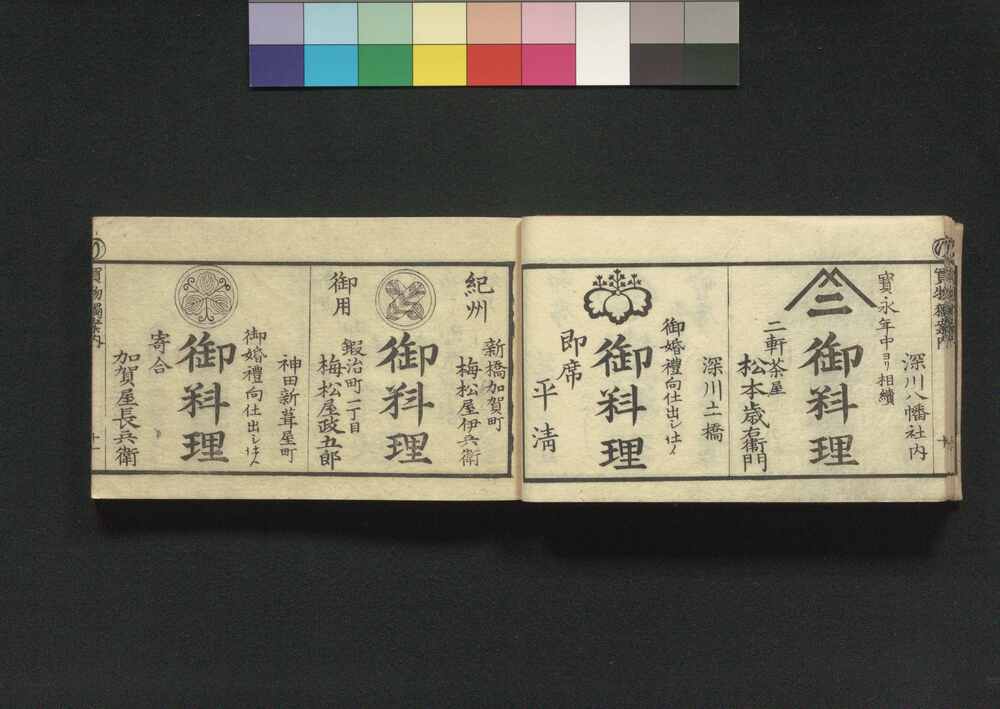 深川八幡社内
寳永年中ヨリ相續
御料理
二軒茶屋
松本歳右衛門
深川土橋
御婚禮向仕出シ仕
御料理
即席
平清
新橋加賀町
梅松屋伊兵衛
紀州
御料理
鍛冶町一丁目
梅松屋政五郎
御用
神田新葺屋町
御婚禮向仕出シ仕
御料理
寄合
加賀屋長兵衛
買物獨案内
十一